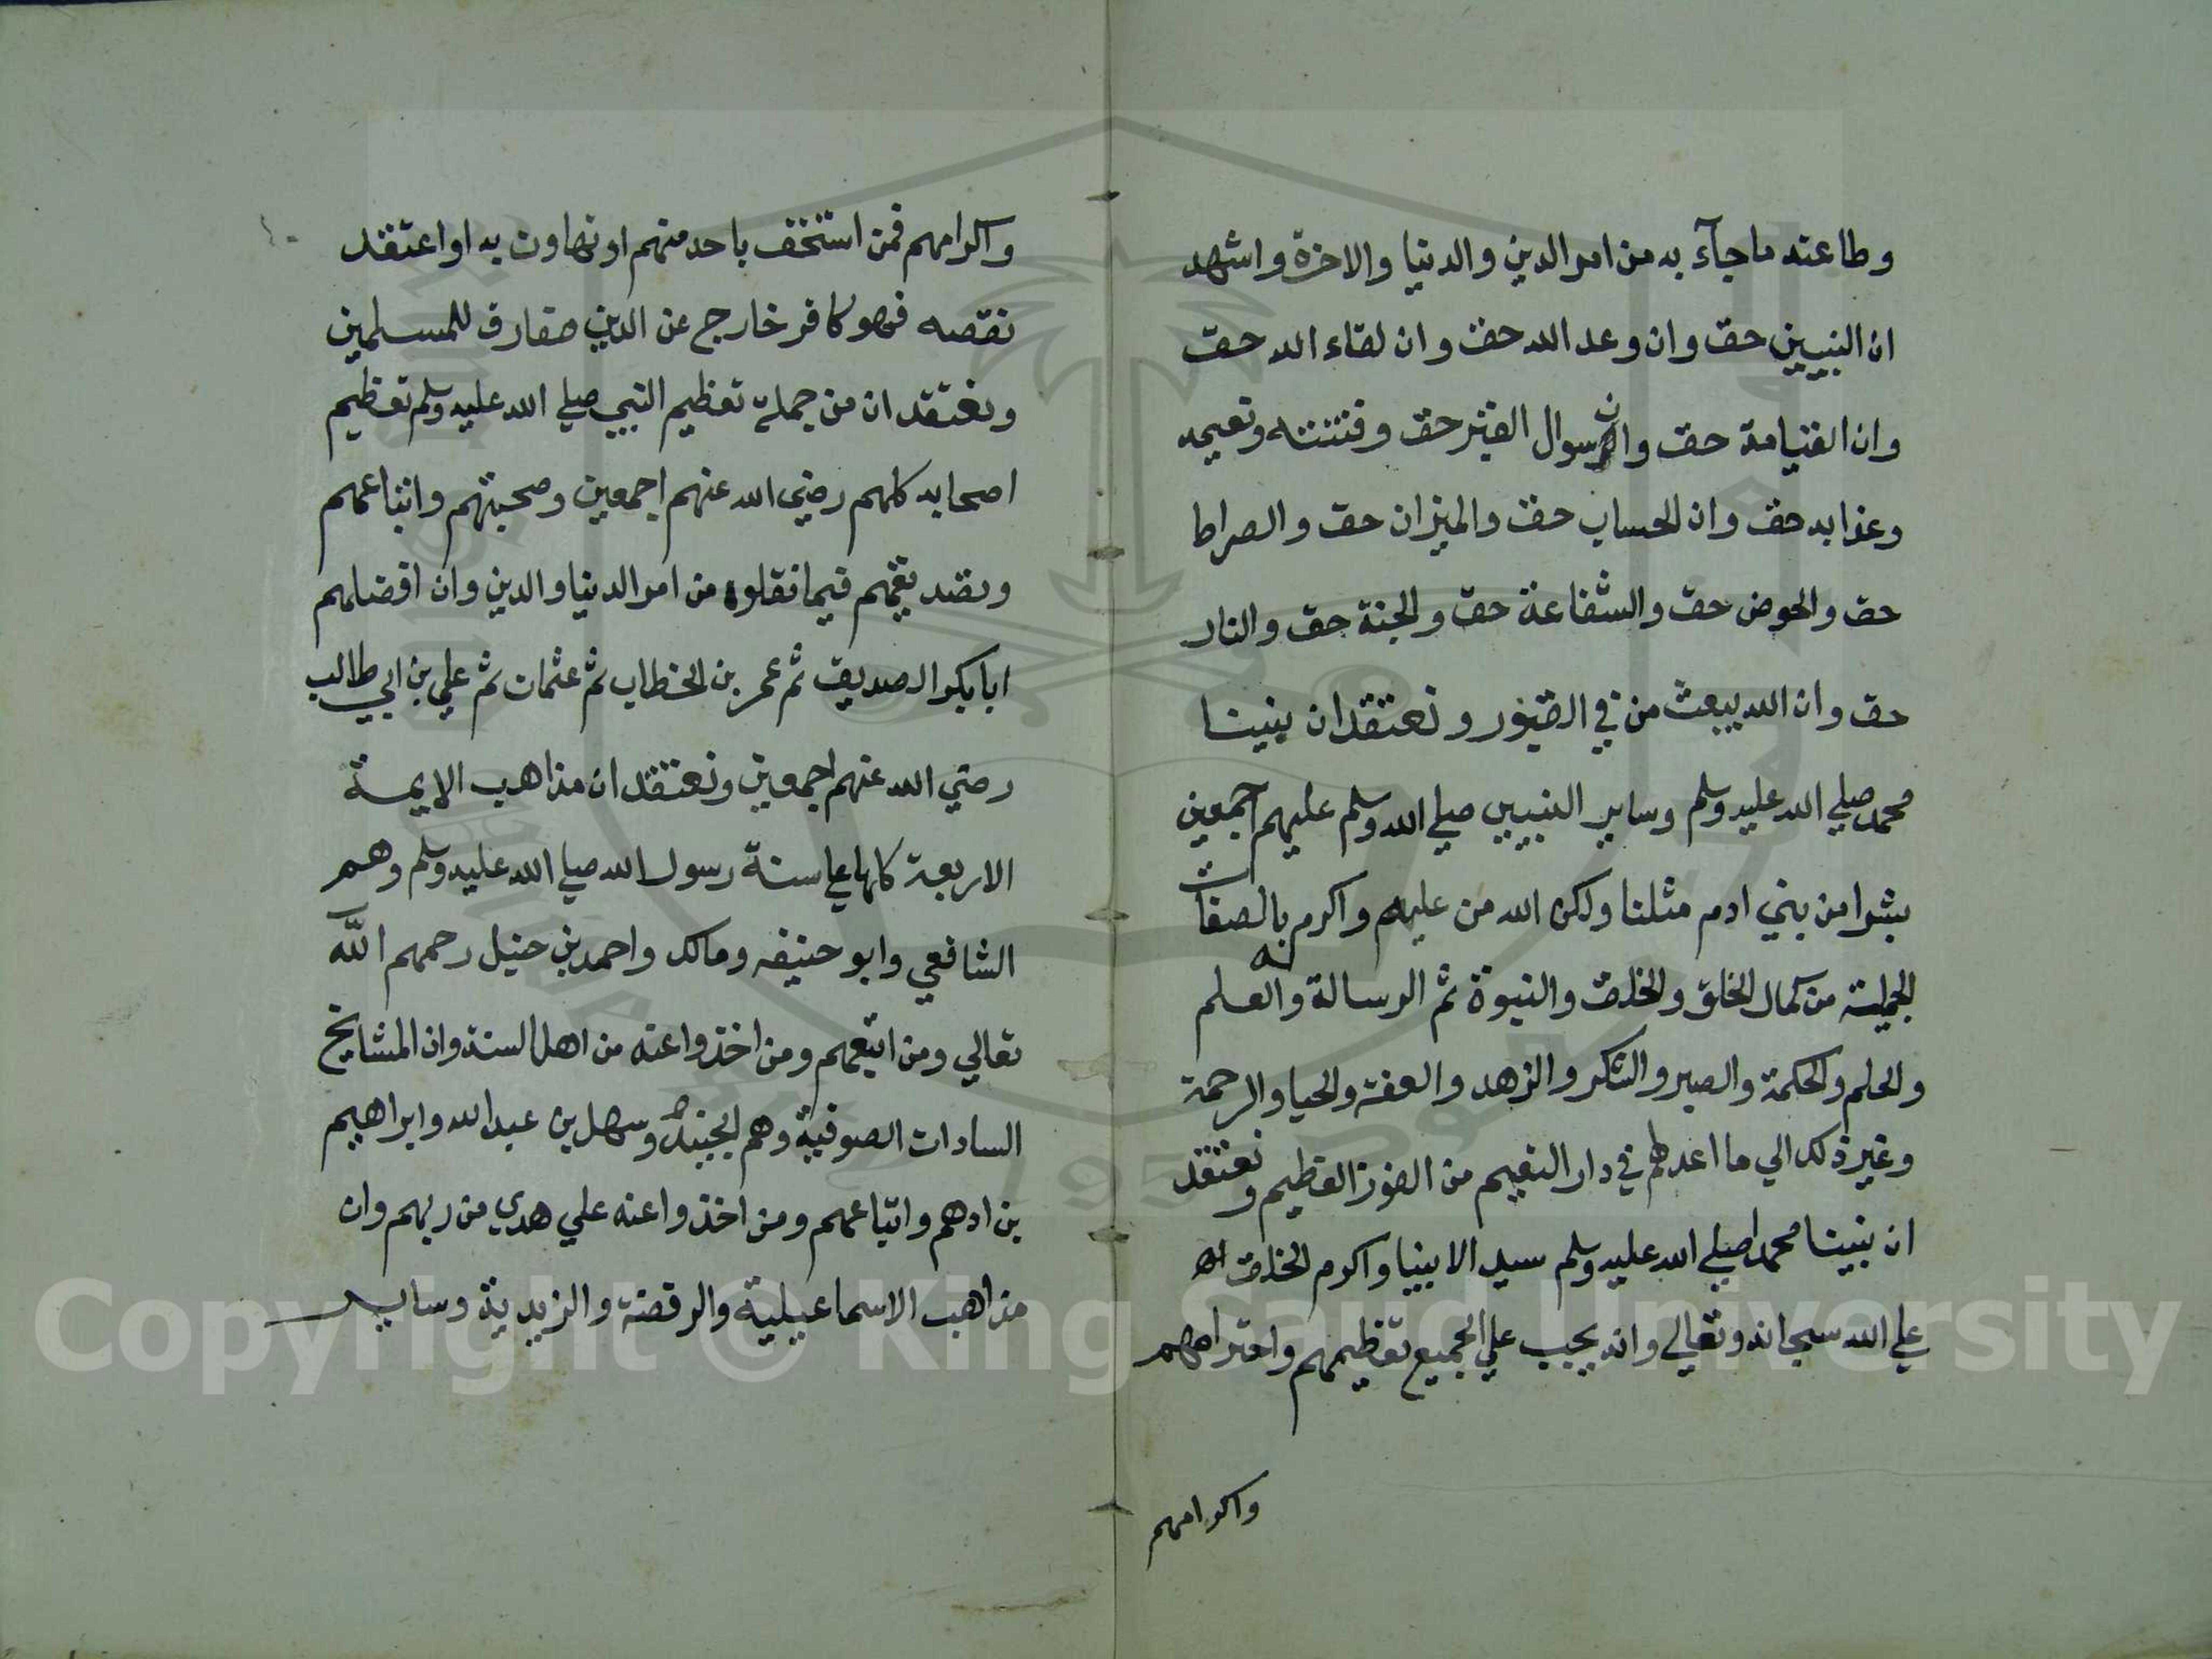 وطاعته ماجآء به من امر الدين والدنيا والاخرة واشهد
ان النبيين حق وان وعد الله حق وان لقاء الله حق
وان القيامة حق وان سوال القبر حق وفتنته ونعيمه
وعذابه حق وان الحساب حق والميزان حق والصراط
حق والحوض حق والشفاعة حق والجنة حق والنار
حق وان الله يبعث من في القبور ونعتقد ان نبينا
محمد صلي الله عليه وسلم وساير النبيين صلي الله وسلم عليهم اجمعين
بشرا من بني ادم مثلنا ولكن الله من عليهم واكرم بالصفات
الجميلة من كمال الخلق والخلق والنبوة ثم الرسالة والعلم
والحلم والحكمة والصبر والشكر والزهد والعفة والحيا والرحمة
وغير ذلك الي ما اعد لهم في دار النعيم من الفوز العظيم ونعتقد
ان نبينا محمدا صلي الله عليه وسلم سيد الانبيا واكرم الخلق
علي الله سبحانه وتعالي وانه يجب علي الجميع تعظيمهم واحترامهم
واكرامهم
واكرامهم فمن استخف باحد منهم او تهاون به او اعتقد
نقصه فهو كافر خارج عن الدين مفارق للمسلمين
ونعتقد ان من جملة تعظيم النبي صلي الله عليه وسلم تعظيم
اصحابه كلهم رضي الله عنهم اجمعين وصحبتهم واتباعهم
وتصديقهم فيما نقلوه من امر الدنيا والدين وان افضلهم
ابا بكر الصديق ثم عمر بن الخطاب ثم عثمان ثم علي بن ابي طالب
رضي الله عنهم اجمعين ونعتقد ان مذاهب الايمة
الاربعة كلها علي سنة رسول الله صلي الله عليه وسلم وهم
الشافعي وابو حنيفه ومالك واحمد بن حنبل رحمهم الله
تعالي ومن اتبعهم ومن اخذوا عنه من اهل السنة وان المشايخ
السادات الصوفية وهم الجنيد وسهل بن عبد الله وابراهيم
بن ادهم واتباعهم ومن اخذوا عنه علي هدي من ربهم وان
مذاهب الاسماعيلية والرفضة والزيدية وساير
Copyright © King Saud University